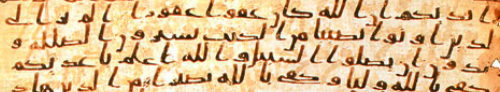 ايديكم ان الله كان عفوا غفورا الم تر الى
الذين اوتوا نصيبا من الكتب يشترون الضللة و
يريدون ان تضلوا السبيل والله اعلم باعدىكم
وكفى بالله وليا وكفى بالله نصيرا من الذين هاد